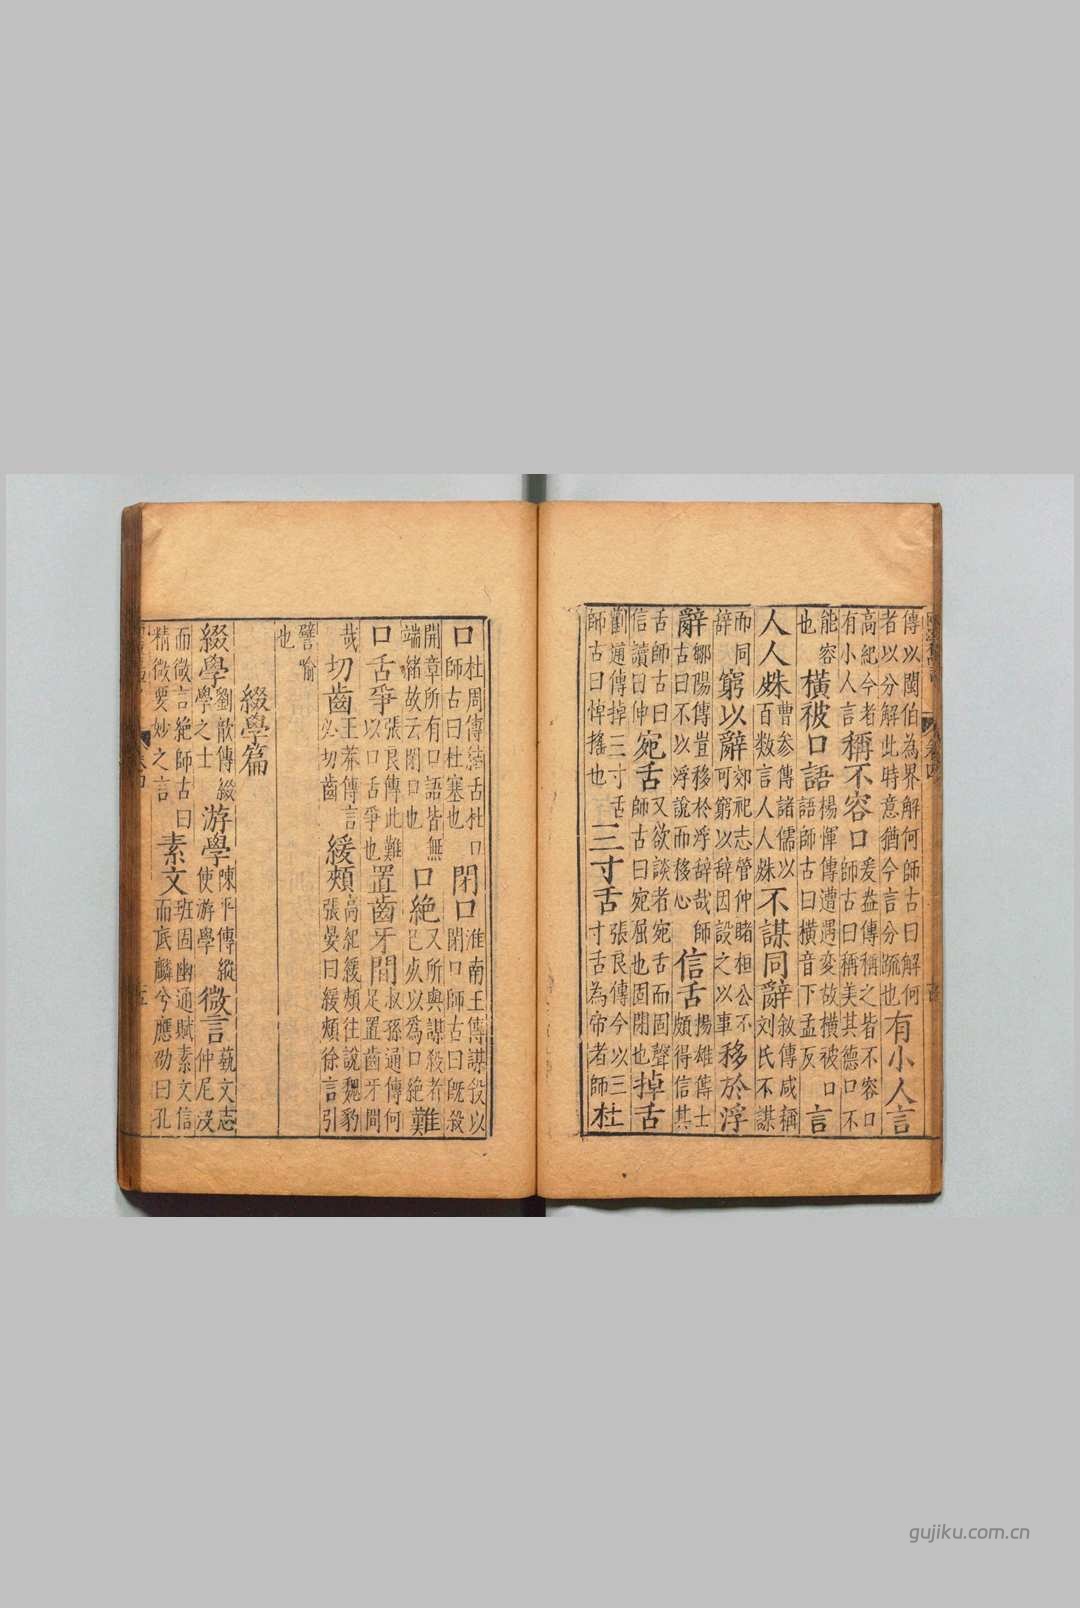 傳以閩伯為界解何師古曰解何者以分解此時意猶今言分疏也有小人言
高紀今者有小人言稱不容口爰盎傳稱之皆不容口師古曰稱美其德口不
能容也橫被口語楊惲傳遭遇変故横被口語師古曰横音下孟反言
人人姝曹参傳諸儒以百数言人人姝不謀同辭敘傳咸稱刘氏不謀
而同辞窮以辭郊祀志管仲睹桓公不可窮以辞因設之以事移於浮
辭鄒陽傳豈移於浮辞哉師古曰不以浮說而移心信舌揚雄傳士頗得信其
舌師古曰信讀曰伸宛舌又欲談者宛舌而固聲師古曰宛屈也固閉也掉舌
蒯通傳掉三寸舌師古曰悼揺也三寸舌張良傳今以三寸舌為帝者師杜
口杜周傳舌杜口師古曰杜塞也閉口淮南王傳謀殺以閉口師古曰既殺
開章所有口語皆無端緒故云閉口也口絶又所與謀殺者已以爲口絶難
口舌爭張良傳此難以口舌爭也置齒牙間叔孫通傳何足置齒牙間
哉切齒王莽傳言必切齒緩頰高紀緩頰往說魏豹張晏曰緩頰徐言引
譬喻也
綴學篇
綴學劉歆傳綴學之士游學陳平傳縱使游學微言藝文志仲尼没
而微言絶師古曰精微要妙之言素文班固幽通賦素文信而底麟兮應劭曰孔
卷四
gujiku.com.cn